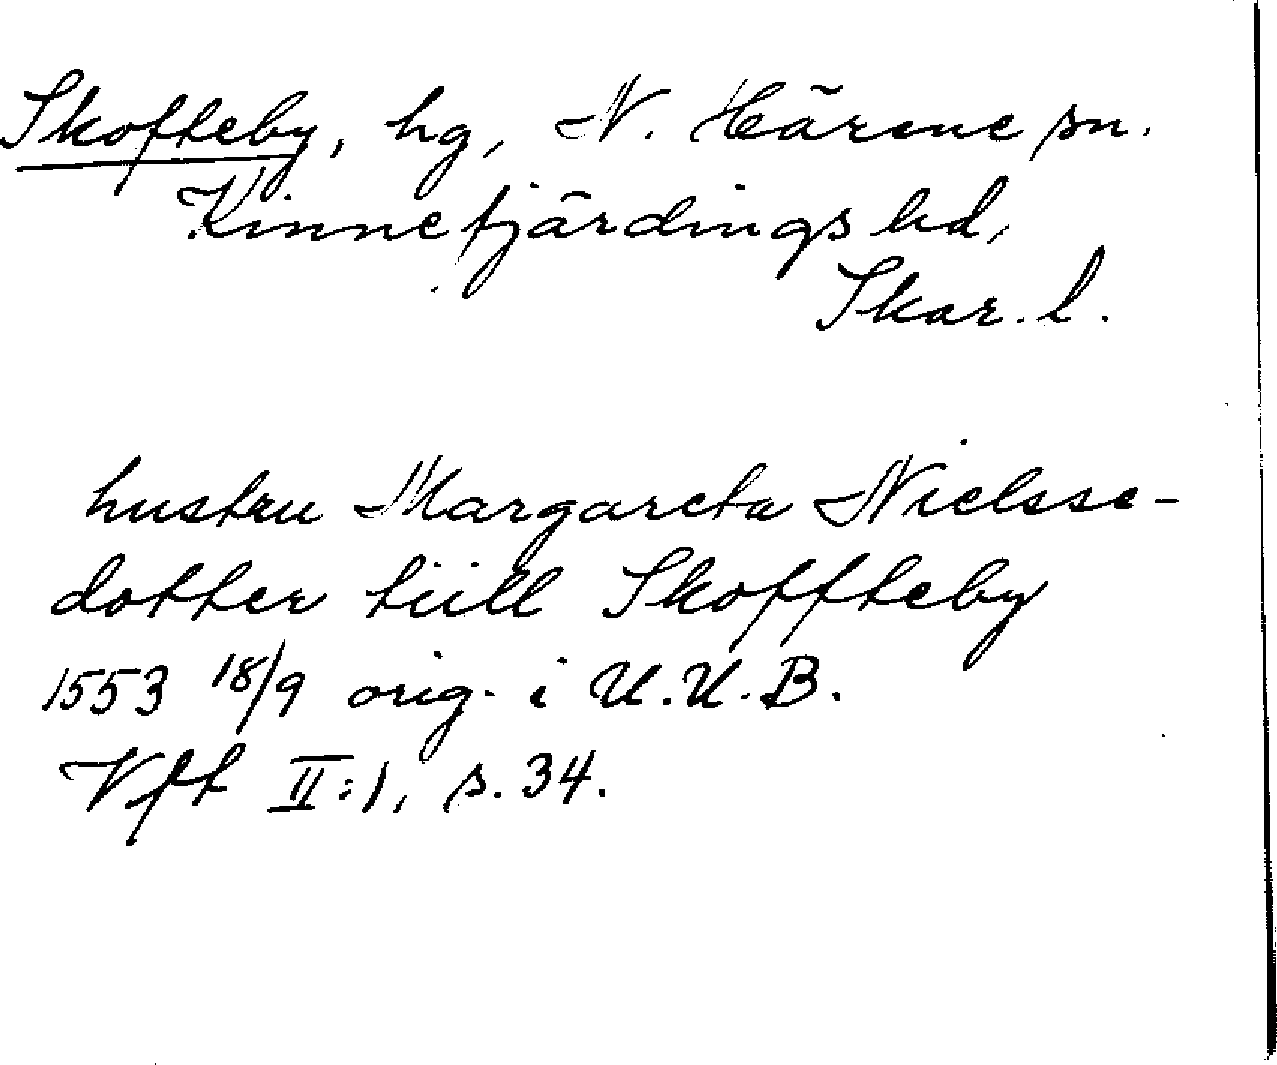 Skofteby, hg, N. Härene sn.
Kinnefjärdings hd,
Skar. l.
hustru Margareta Nielsse-
dotter tiill Skoffteby
1553 18/9 orig. i U.U.B.
Vft II:1, s. 34.